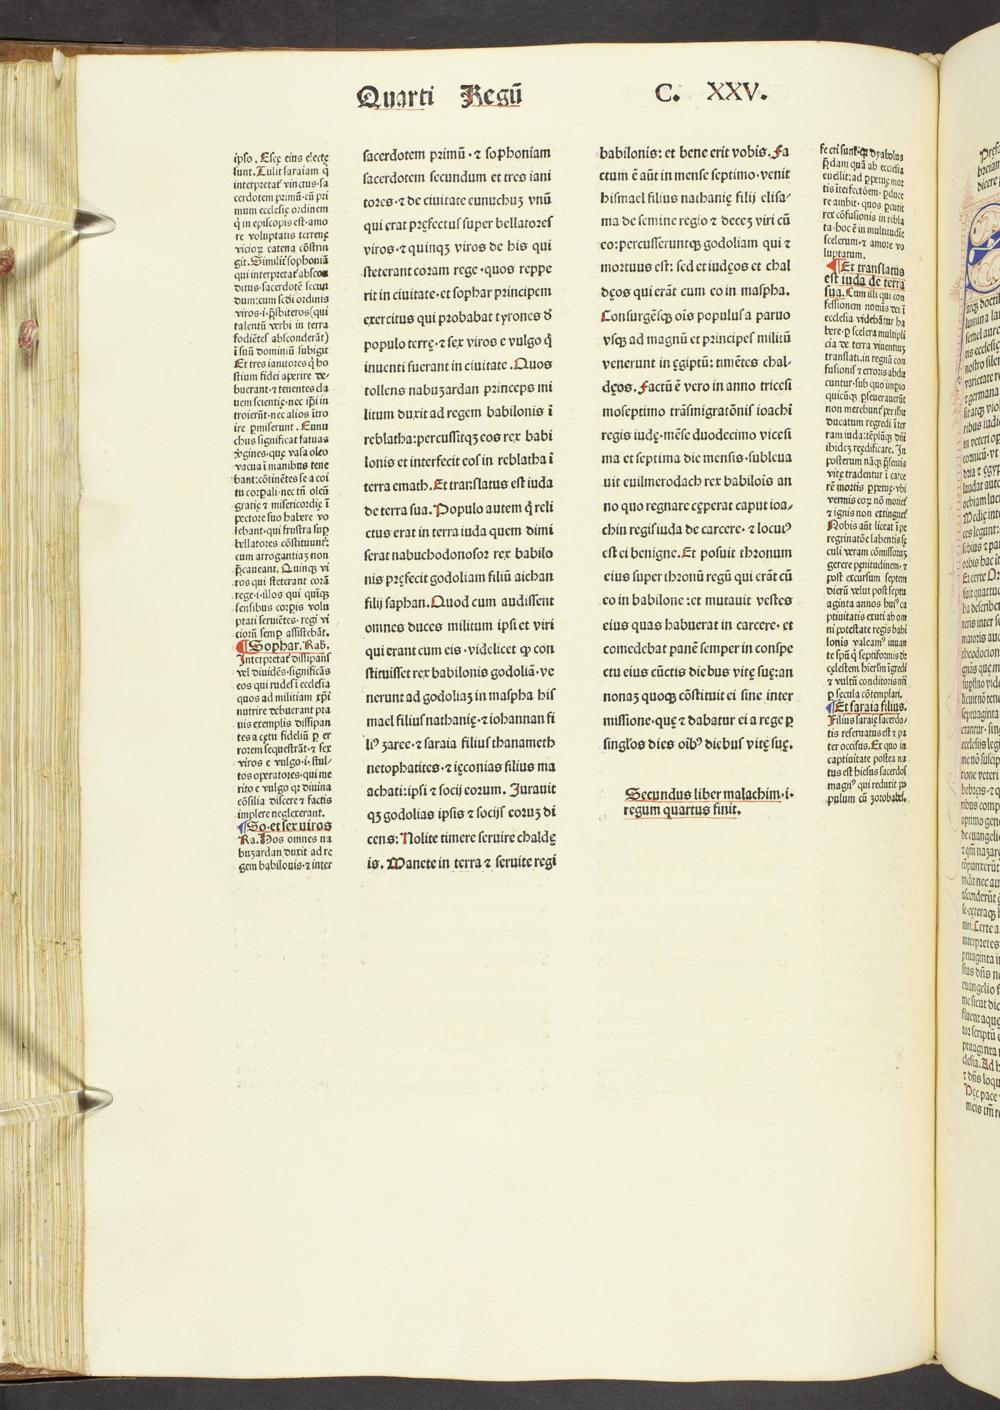 Quarti Regū
C. XXV.
ipso. Escę eius electę
sunt. Tulit saraiam q̇
interpretat᷑ vinctus·sa
cerdotem primū·cū pri
mum ecclesię ordinem
q̇ in episcopis est·amo
re voluptatis terrenę
vicioꝝ catena cōstrin
git. Similit᷑ sophoniā
qui interpretat᷑ abscon
ditus·sacerdotē secun
dum:cum scd̄i ordinis
viros·i·p̄sbiteros(qui
talentū verbi in terra
fodiētes absconderāt)
ī suū dominiū subigit
Et tres ianitores q̇ ho
stium fidei aperire de-
buerant·⁊ tenentes da
uem scientię·nec ip̄i in
troierūt·nec alios ītro
ire p̄miserunt. Eunu
chus significat fatuas
v̓gines·quę vasa oleo
vacua ī manibus tene
bant:cōtinētes se a coi
tu corꝑali·nec tn̄ oleū
gratię ⁊ misericordię ī
pectore suo habere vo
lebant·qui frustra suꝑ
bellatores cōstituunt᷑:
cum arrogantiaꝫ non
p̄caueant. Quinqꝫ vi
ros qui steterant corā
rege·i·illos qui quīqꝫ
sensibus corꝑis volu
ptati seruiētes·regi vi
ciorū semꝑ assistebāt.
¶Sophar. Rab.
Interpretat᷑ dissipans
vel diuidēs·significās
eos qui rudes ī ecclesia
quos ad militiam xp̄i
nutrire debuerant pra
uis exemplis dissipan
tes a cętu fideliū ꝑ er
rorem sequestrāt·⁊ sex
viros e vulgo·i·stul-
tos operatores·qui me
rito e vulgo qꝛ diuina
cōsilia discere ⁊ factis
implere neglexerant.
¶So·et sex viros
Ra. Hos omnes na
buzardan duxit ad re
gem babilonis·⁊ inter
sacerdotem primū·⁊ sophoniam
sacerdotem secundum et tres iani
tores·⁊ de ciuitate eunuchuꝫ vnū
qui erat pręfectus super bellatores
viros·⁊ quinqꝫ viros de his qui
steterant coram rege·quos reppe
rit in ciuitate·et sophar principem
exercitus qui probabat tyrones ꝺ̄
populo terrę·⁊ sex viros e vulgo q̇
inuenti fuerant in ciuitate. Quos
tollens nabuzardan princeps mi
litum duxit ad regem babilonis ī
reblatha:percussitqꝫ eos rex babi
lonis et interfecit eos in reblatha ī
terra emath. Et translatus est iuda
de terra sua. Populo autem q̇ reli
ctus erat in terra iuda quem dimi
serat nabuchodonosor rex babilo
nis pręfecit godoliam filiū aichan
filij saphan. Quod cum audissent
omnes duces militum ipsi et viri
qui erant cum eis·videlicet ꝙ con
stituisset rex babilonis godoliā·ve
nerunt ad godoliaꝫ in maspha his
mael filius nathanię·⁊ iohannan fi
liꝰ ꝫaree·⁊ saraia filius thanameth
netophatites·⁊ ięconias filius ma
achati:ipsi ⁊ socij eorum. Iurauit
qꝫ godolias ipsis ⁊ socijs eoruꝫ di
cens: Nolite timere seruire chaldę
is. Manete in terra ⁊ seruite regi
babilonis: et bene erit vobis. Fa
ctum ē aūt in mense septimo·venit
hismael filius nathanię filij elisa-
ma de semine regio ⁊ deceꝫ viri cū
eo:percusseruntqꝫ godoliam qui ⁊
mortuus est: sed et iudęos et chal
dęos qui erāt cum eo in maspha.
Consurgēsqꝫ oīs populus a paruo
vsqꝫ ad magnū et principes militū
venerunt in ęgiptū: timētes chal-
dęos. Factū ē vero in anno tricesi
moseptimo trāsmigratōnis ioachī
regis iudę·mēse duodecimo vicesi
ma et septima die mensis·subleua
uit euilmerodach rex babilois an
no quo regnare cęperat caput ioa-
chin regis iuda de carcere·⁊ locutꝰ
est ei benigne. Et posuit thronum
eius super thronū regū qui erāt cū
eo in babilone:et mutauit vestes
eius quas habuerat in carcere·et
comedebat panē semper in conspe
ctu eius cūctis diebus vitę suę:an
nonaꝫ quoqꝫ cōstituit ei sine inter
missione·quę ⁊ dabatur ei a rege ꝑ
singlos dies oībꝰ diebus vitę suę.
Secundus liber malachim·i·
regum quartus finit.
fecti sunt·qꝛ dyabolus
p̄dam quā ab ecclesia
tuellit:ad ꝑpetuę mor
tis īterfectōem·ꝑduce
re ambit·quos ꝑcutit
rex cōfusionis in rebla
ta·hoc ē in multitudīe
scelerum·⁊ amore vo
luptatum.
¶Et translatus
est iuda de terra
sua. Cum illi qui con
fessionem nomīs dei ī
ecclesia videbātur ha
bere·ꝑ scelera multipli
cia de terra viuentiuꝫ
translati·in regnū con
fusionis ⁊ erroris abdu
cuntur·sub quo impio
quicūqꝫ ꝑseuerauerūt
non merebunt᷑ ꝑer xp̄i
ducatum regredi ī ter
ram iuda:tēplūqꝫ dn̄i
ibideꝫ reędificare. In
posterum nāqꝫ p̄sentis
vitę tradentur ī carce
rē mortis ꝑpetuę·vbi
vermis eoꝝ nō moriet᷑
⁊ ignis non extinguet᷑
Nobis aūt liceat ī pe
regrinatōe labentis sę
culi veram cōmissoruꝫ
gerere pęnitudinem·⁊
post excursum septem
dierū velut post septu
aginta annos huiꝰ ca
ptiuitatis exuti ab om
ni potestate regis babi
lonis valeamꝰ iuuan
te spū q̇ septiformis de
cęlestem hierlm̄ īgredi
⁊ vultū conditoris nr̄i
ꝑ sęcula cōtemplari.
¶Et saraia filius.
Filius saraię sacerdo-
tis reseruatus est ⁊ pa
ter occisus. Et quo in
captiuitate postea na
tus est hiesus sacerdos
magnꝰ qui reduxit pꝛ
pulum cū ꝫorobabel.